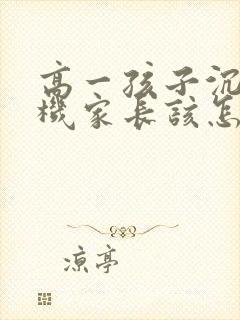 高一孩子沉
機家長該怎
凉亭